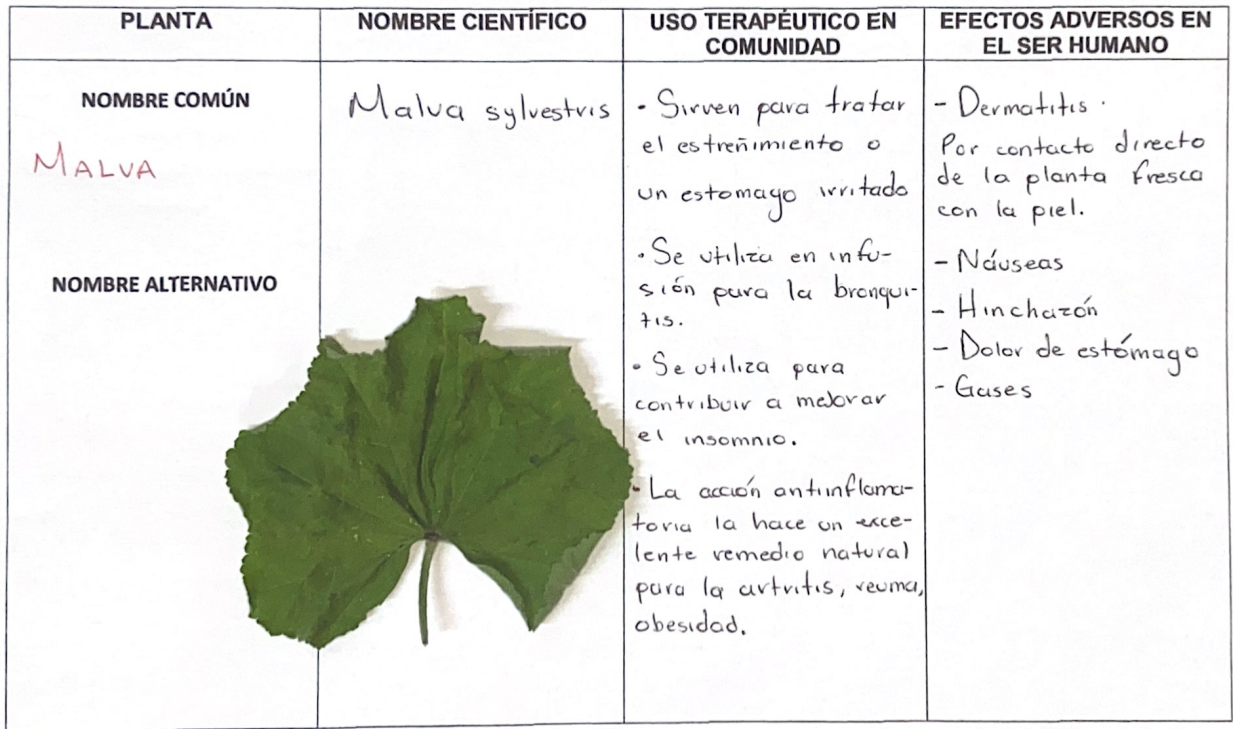 PLANTA
NOMBRE CIENTÍFICO
USO TERAPÉUTICO EN
COMUNIDAD
EFECTOS ADVERSOS EN
EL SER HUMANO
NOMBRE COMÚN
MALVA
NOMBRE ALTERNATIVO
Malva sylvestris
• Sirven para tratar
el estreñimiento o
un estomago irritado
• Se utiliza en infu-
sión para la bronqui-
tis.
• Se utiliza para
contribuir a mejorar
el insomnio.
• La acción antiinflama-
toria la hace un exce-
lente remedio natural
para la artritis, reuma,
obesidad.
- Dermatitis.
Por contacto directo
de la planta fresca
con la piel.
- Náuseas
- Hinchazón
- Dolor de estómago
- Gases